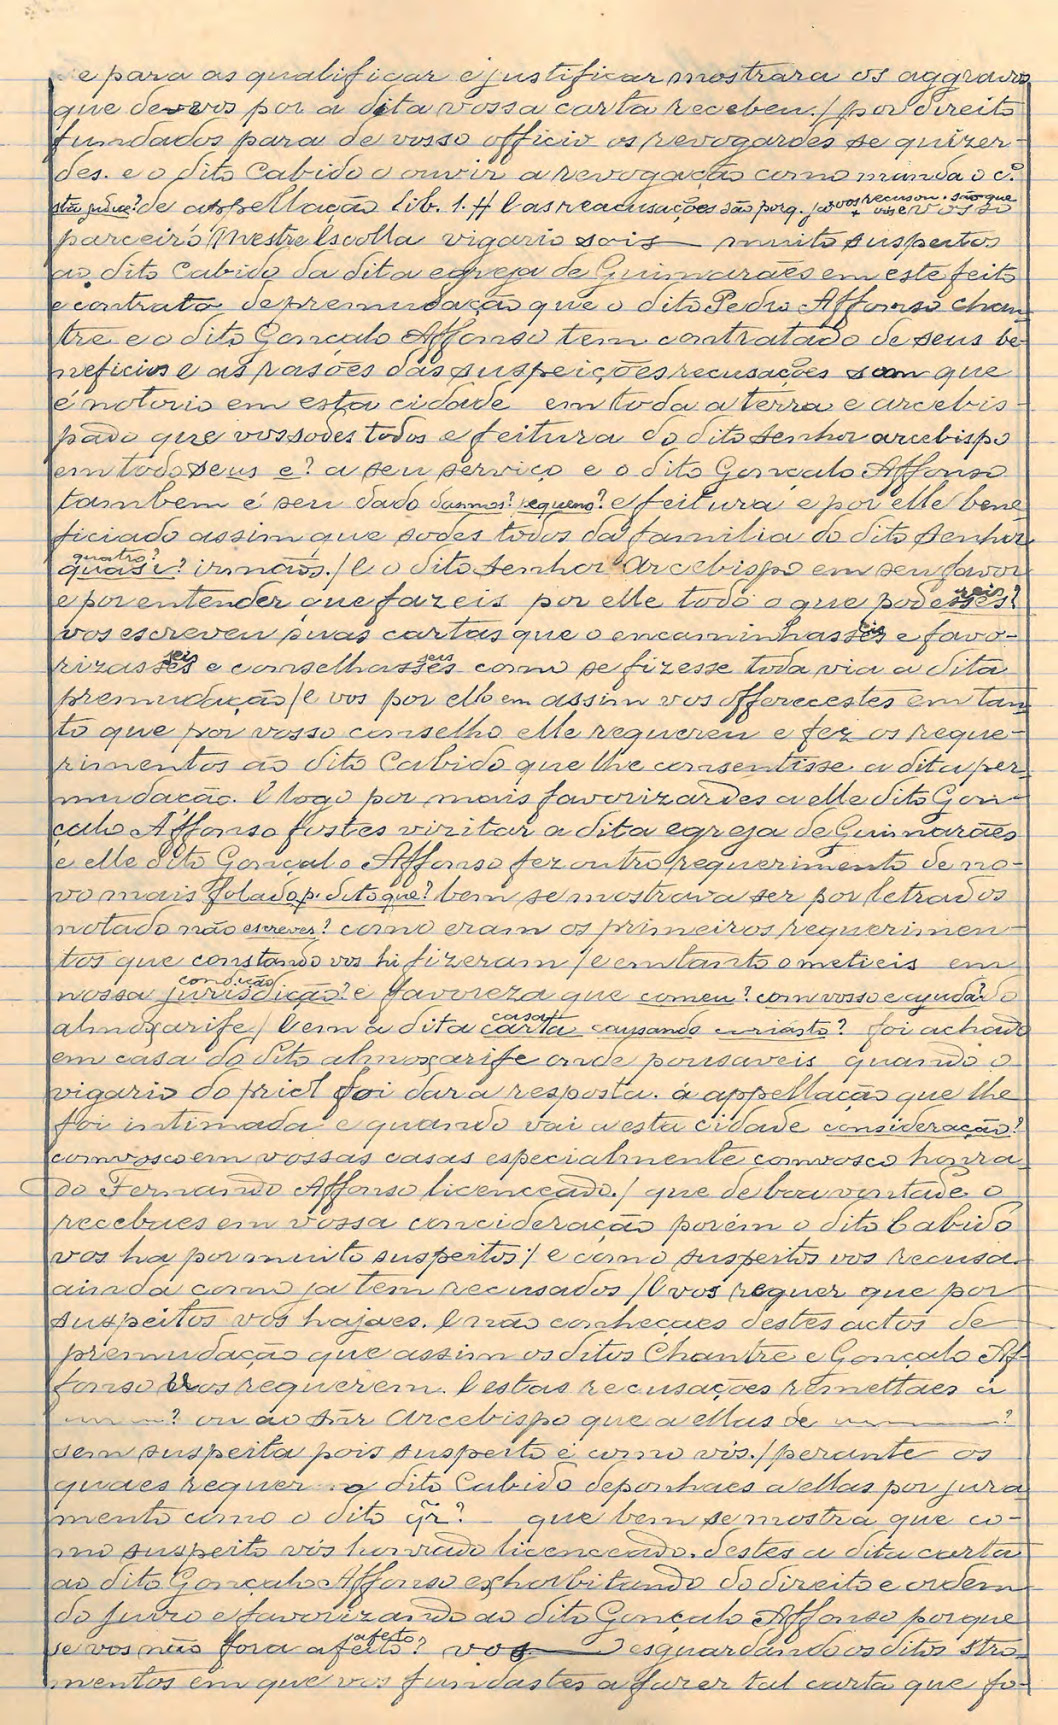 e para as qualificar e justificar mostrara os aggravos
que de vos por a dita vossa carta recebeu. / por direito
fundados para de vosso officio os revogardes se quizer-
des. e o dito Cabido o ouvir a revogação como manda o c.º
de appellação lib. 1. E as recusações são porq. ja vos recusou. são que vosso
parceiro Mestre Escolla vigario sois — muito suspeitos
ao dito Cabido da dita egreja de Guimarães em este feito
e contrato de premudação que o dito Pedro Affonso chan-
tre e o dito Gonçalo Affonso tem contratado de seus be-
neficios e as rasões das suspeições recusações som que
é notorio em esta cidade em toda a terra e arcebis-
pado que vos sodes todos e feitura do dito Senhor arcebispo
em todo seus e? a seu serviço e o dito Gonçalo Affonso
tambem é seu dado e feitura e por elle bene-
ficiado assim que sodes todos da familia do dito Senhor
quatro?
quasi? irmãos. / E o dito Senhor Arcebispo em seu favor
e por entender que fazeis por elle todo o que podesseis?
vos escreveu suas cartas que o encaminhasseis e favo-
rizasseis e conselhasseis como se fizesse toda via a dita
premudação / e vos por ello em assim vos offerecestes em tan-
to que por vosso conselho elle requereu e fez os reque-
rimentos ao dito Cabido que lhe consentisse a dita per-
mudação. E logo por mais favorizardes a elle dito Gon-
çalo Affonso fostes visitar a dita egreja de Guimarães
e elle dito Gonçalo Affonso fez outro requerimento de no-
vo mais folado p. dito que? bem se mostrava ser por letrados
notado não escrever? como eram os primeiros requerimen-
tos que constando vos hi fizeram / e em tanto o metieis em
condição
nossa jurisdicção? e favoreza que comeu? com vosso e ajudar do
casa
almoxarife / E em a dita carta causando foi achado
em casa do dito almoxarife onde pousaveis quando o
vigario do priol foi dar a resposta. á appellação que lhe
foi intimada e quando vai a esta cidade consideração?
comvosco em vossas casas especialmente comvosco honra-
do Fernando Affonso licenceado. / que de boa vontade o
recebues em vossa concideração porém o dito Cabido
vos ha por muito suspeitos / e como suspeitos vos recusa
ainda como ja tem recusados / E vos requer que por
suspeitos vos hajaes. E não conheçaes destes actos de
premudação que assim os ditos Chantre e Gonçalo Af-
fonso vos requerem. E estas recusações remettaes a
? ou ao Snr Arcebispo que a ellas de ?
sem suspeita pois suspeito é como vós. / perante os
quaes requer o dito Cabido deponhaes a ellas por jura-
mento como o dito q̃r? — que bem se mostra que co-
mo suspeito vós honrado licenceado. destes a dita carta
ao dito Gonçalo Affonso exhorbitando do direito e ordem
do juizo e favorizando ao dito Gonçalo Affonso porque
afecto
se vos não fora a feito? vos — esguardando os ditos stro-
mentos em que vos fundastes a fazer tal carta que fo-